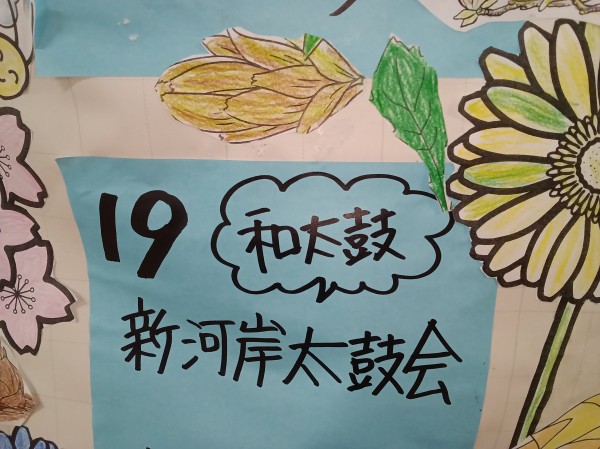 19 和太鼓
新河岸太鼓会